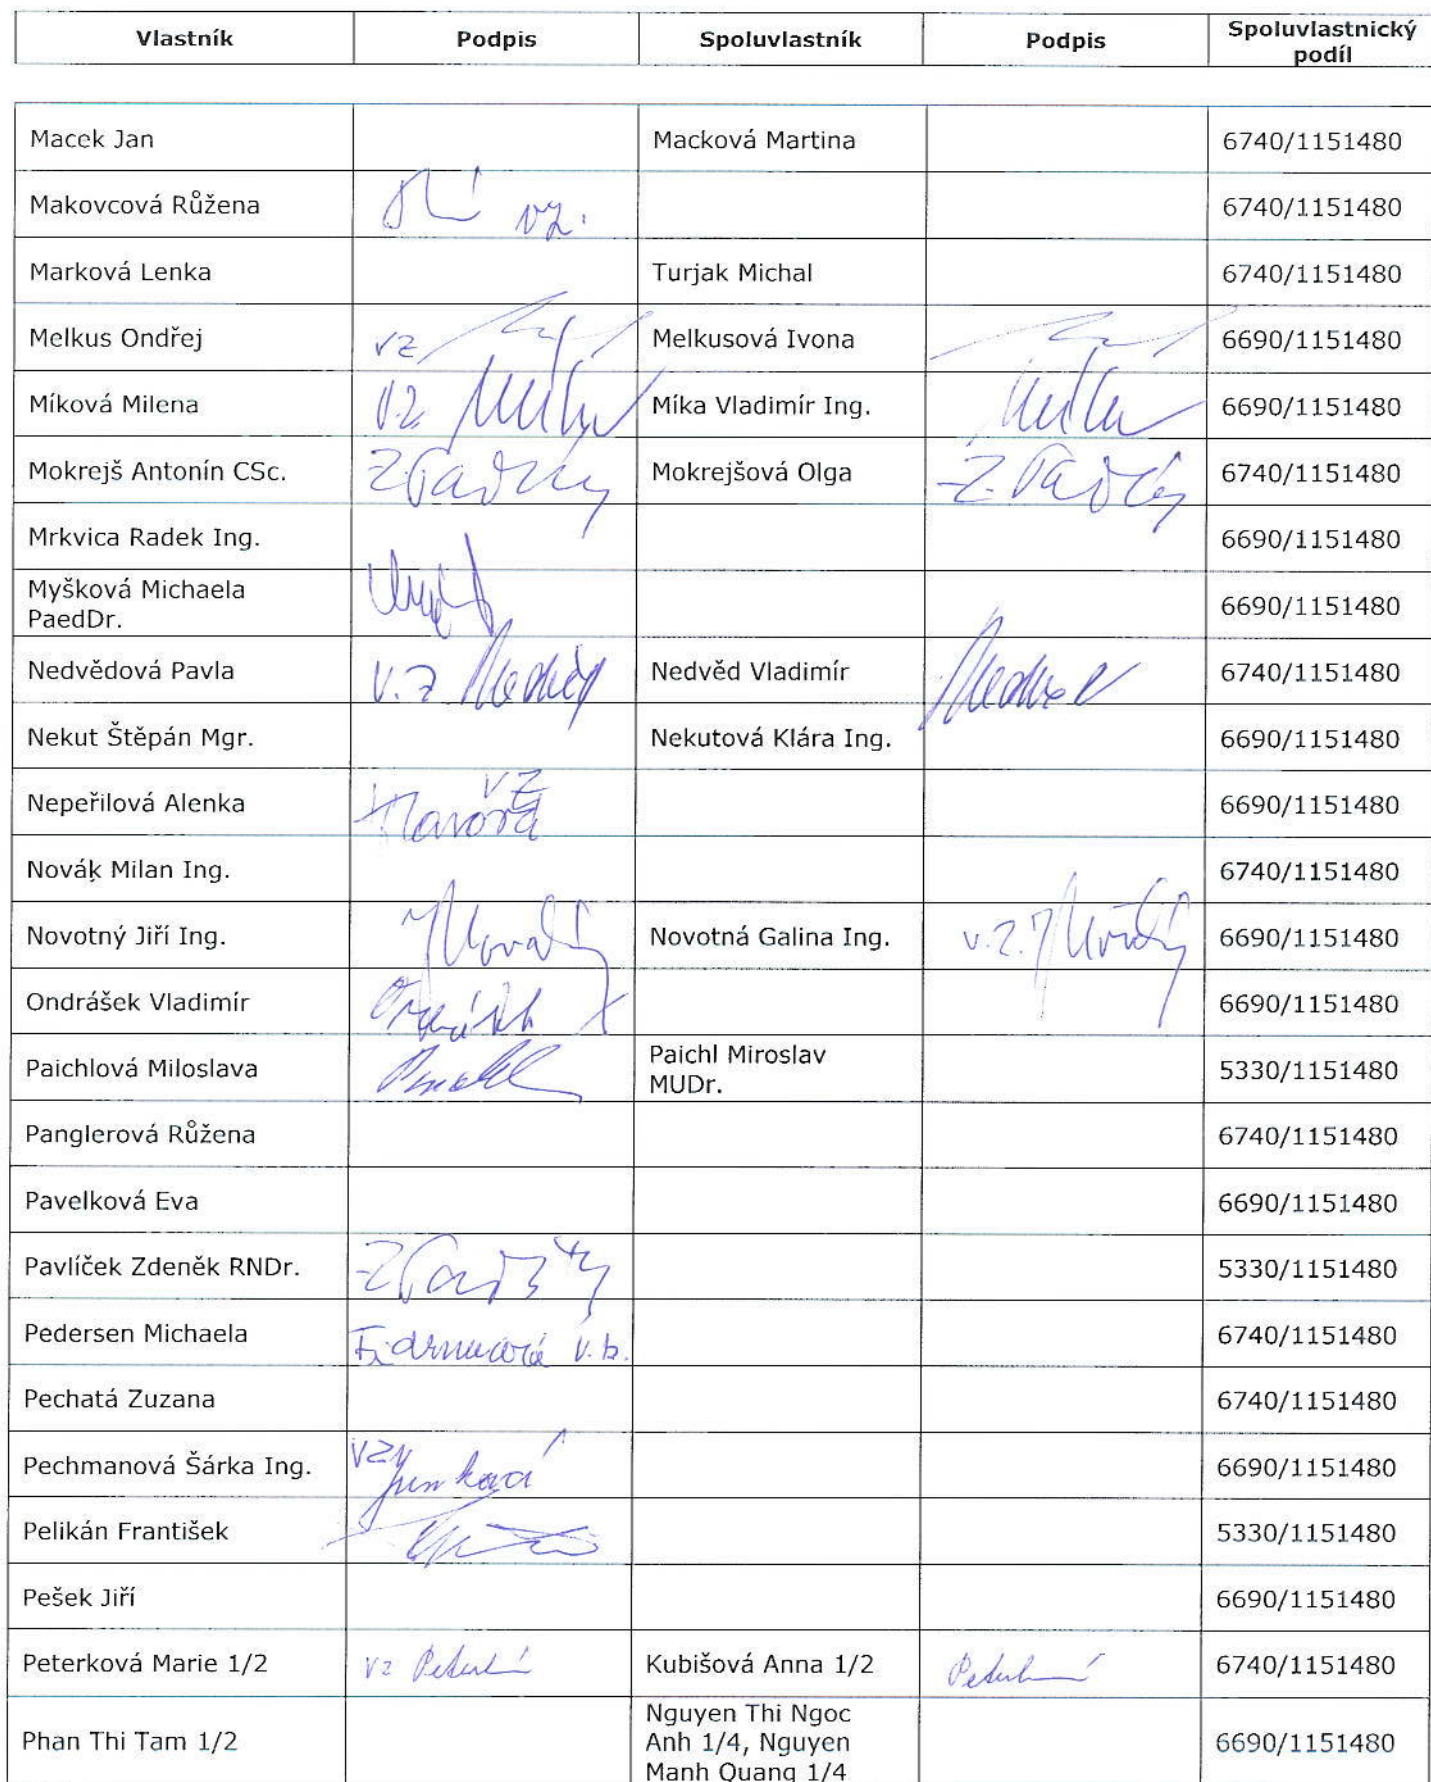 Vlastník Podpis Spoluvlastník Podpis Spoluvlastnický podíl
Macek Jan Macková Martina 6740/1151480
Makovcová Růžena vz. 6740/1151480
Marková Lenka Turjak Michal 6740/1151480
Melkus Ondřej vz Melkusová Ivona 6690/1151480
Míková Milena vz Míka Vladimír Ing. 6690/1151480
Mokrejš Antonín CSc. Mokrejšová Olga 6740/1151480
Mrkvica Radek Ing. 6690/1151480
Myšková Michaela
PaedDr. 6690/1151480
Nedvědová Pavla v.z Nedvěd Nedvěd Vladimír Nedvěd 6740/1151480
Nekut Štěpán Mgr. Nekutová Klára Ing. 6690/1151480
Nepeřilová Alenka vz 6690/1151480
Novák Milan Ing. 6740/1151480
Novotný Jiří Ing. Novotná Galina Ing. v.z. 6690/1151480
Ondrášek Vladimír 6690/1151480
Paichlová Miloslava Paichl Miroslav
MUDr. 5330/1151480
Panglerová Růžena 6740/1151480
Pavelková Eva 6690/1151480
Pavlíček Zdeněk RNDr. 5330/1151480
Pedersen Michaela 6740/1151480
Pechatá Zuzana 6740/1151480
Pechmanová Šárka Ing. 6690/1151480
Pelikán František 5330/1151480
Pešek Jiří 6690/1151480
Peterková Marie 1/2 vz Kubišová Anna 1/2 6740/1151480
Phan Thi Tam 1/2 Nguyen Thi Ngoc
Anh 1/4, Nguyen
Manh Quang 1/4 6690/1151480